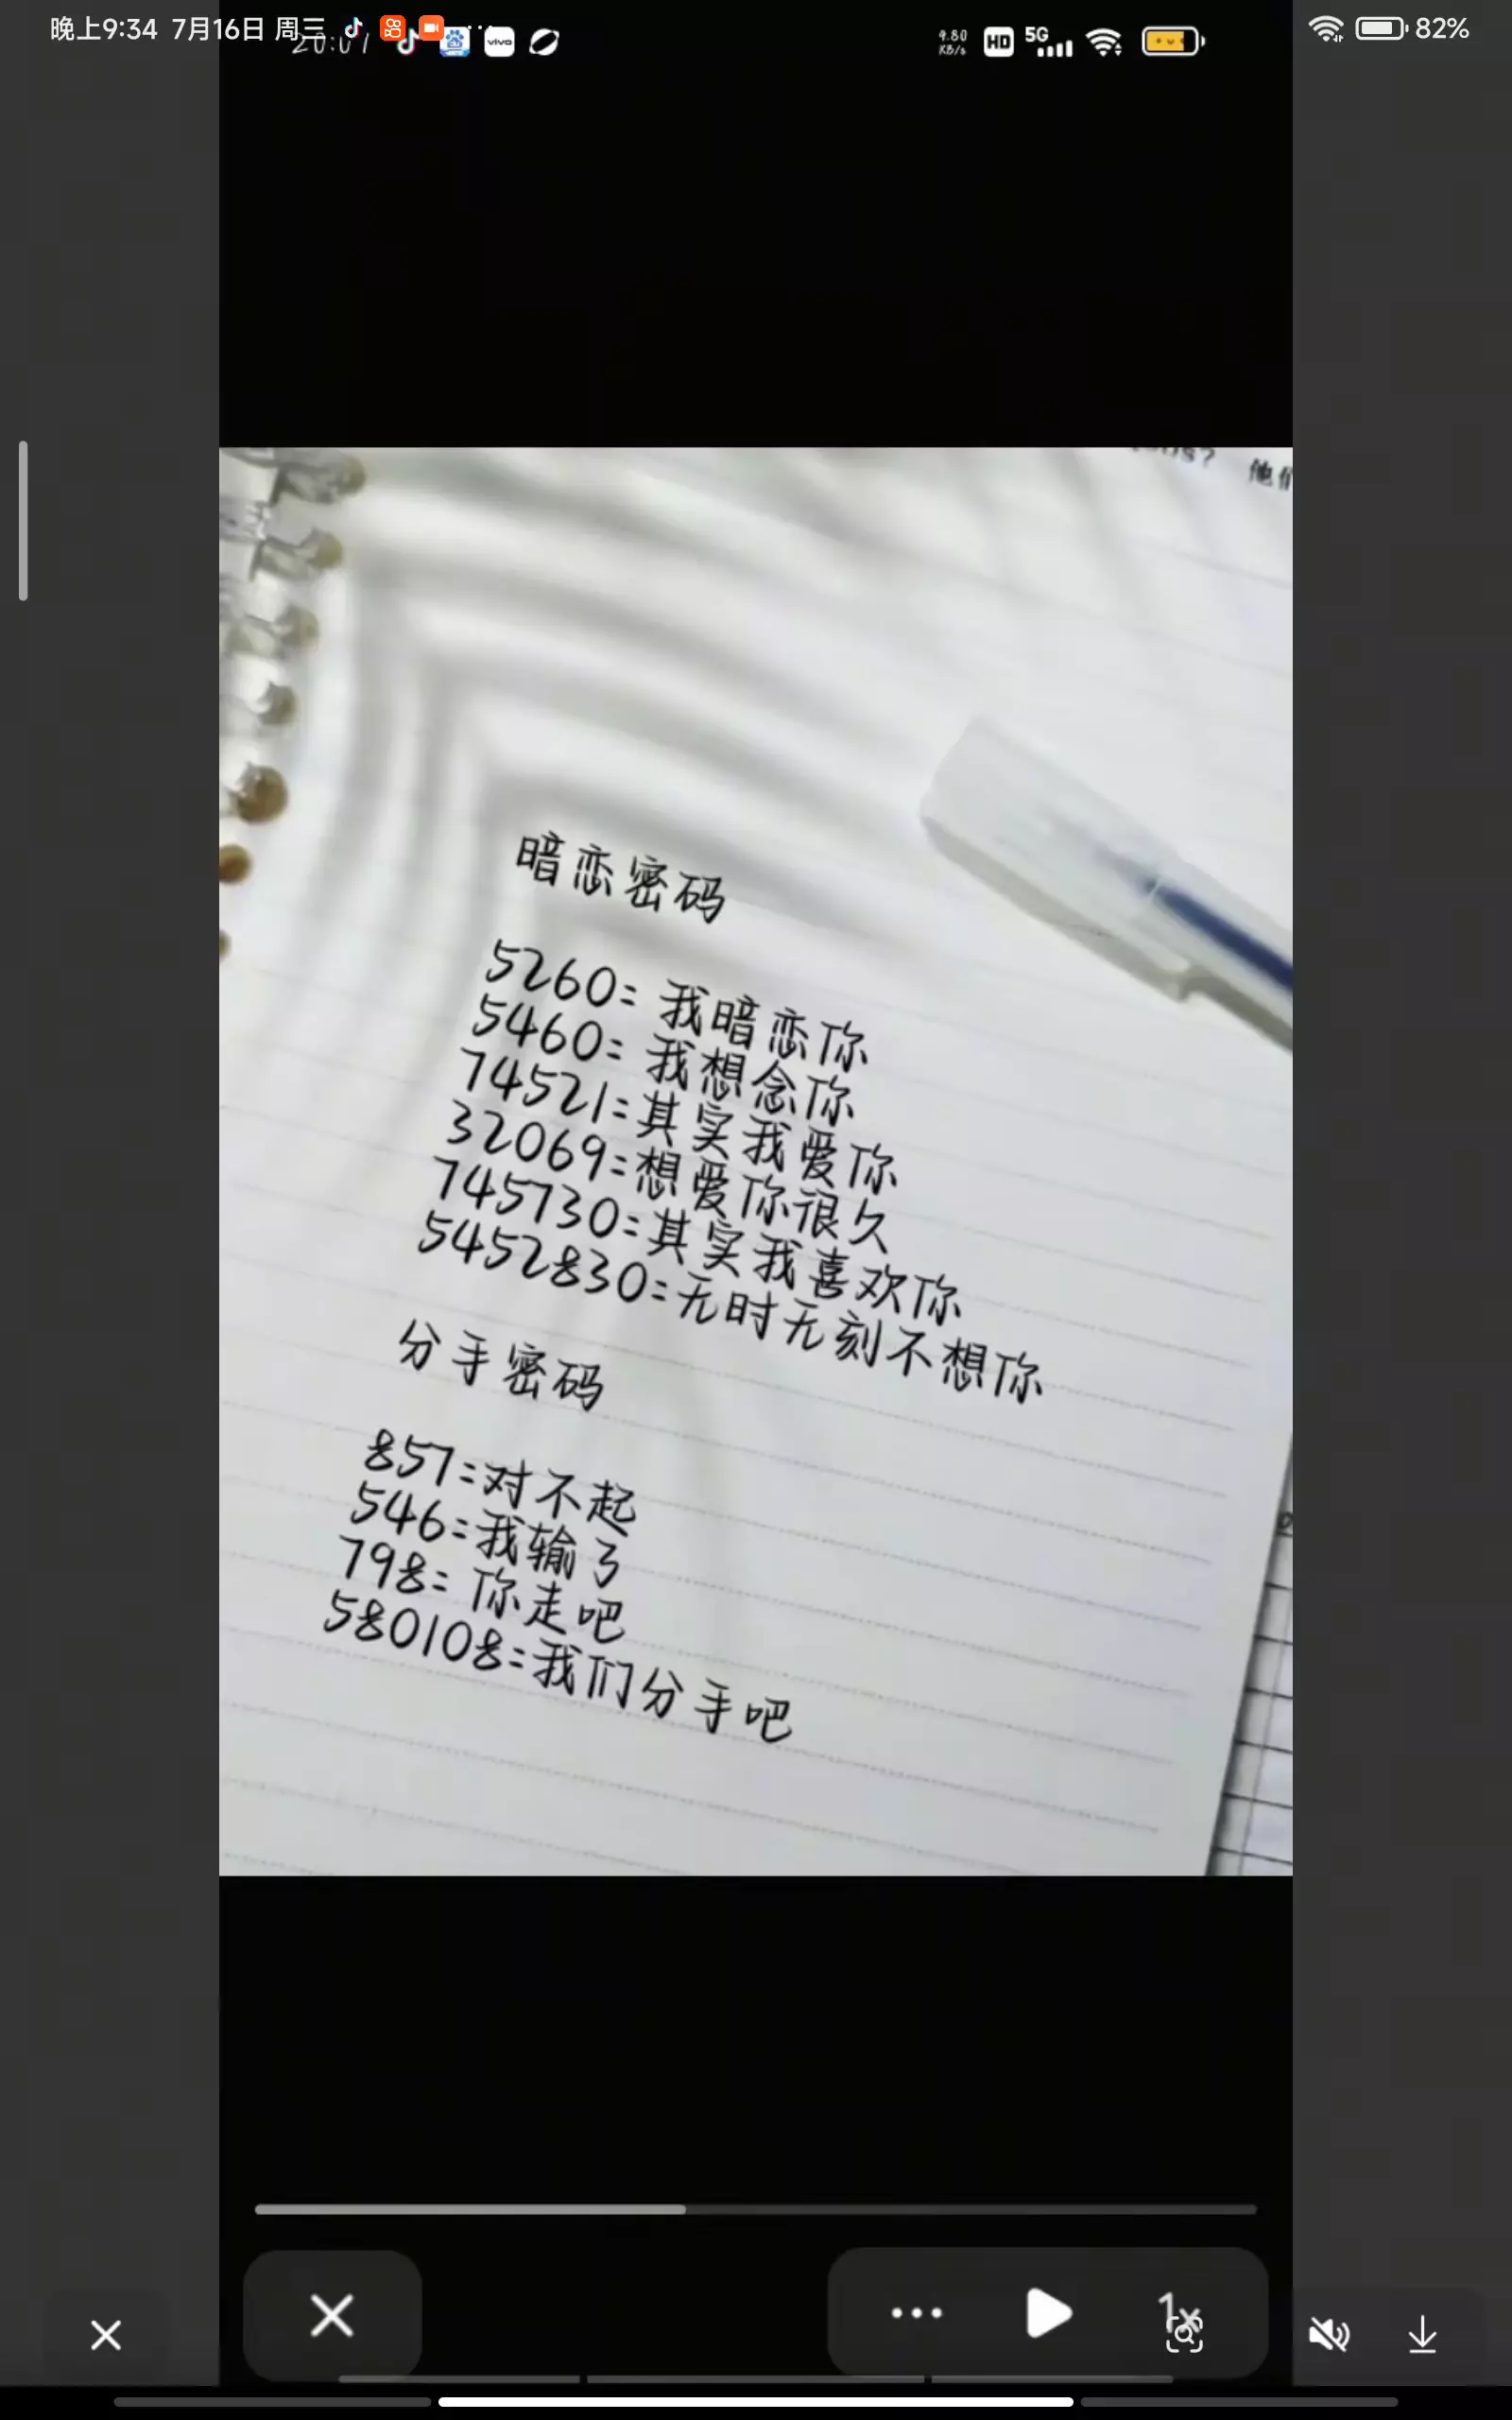 晚上9:34 7月16日 周三
82%
20:07
vivo
9.80 KB/s
HD
5G
他们
暗恋密码
5260=我暗恋你
5460=我想念你
74521=其实我爱你
32069=想爱你很久
745730=其实我喜欢你
5452830=无时无刻不想你
分手密码
857=对不起
546=我输了
798=你走吧
580108=我们分手吧
1x